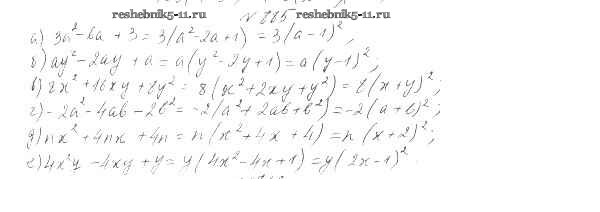 reshebnik5-11.ru № 885 reshebnik5-11.ru
а) 3a² - 6a + 3 = 3(a² - 2a + 1) = 3(a - 1)²;
б) ay² - 2ay + a = a(y² - 2y + 1) = a(y - 1)²;
в) 8x² + 16xy + 8y² = 8(x² + 2xy + y²) = 8(x + y)²;
г) -2a² - 4ab - 2b² = -2(a² + 2ab + b²) = -2(a + b)²;
д) nx² + 4nx + 4n = n(x² + 4x + 4) = n(x + 2)²;
е) 4x²y - 4xy + y = y(4x² - 4x + 1) = y(2x - 1)².